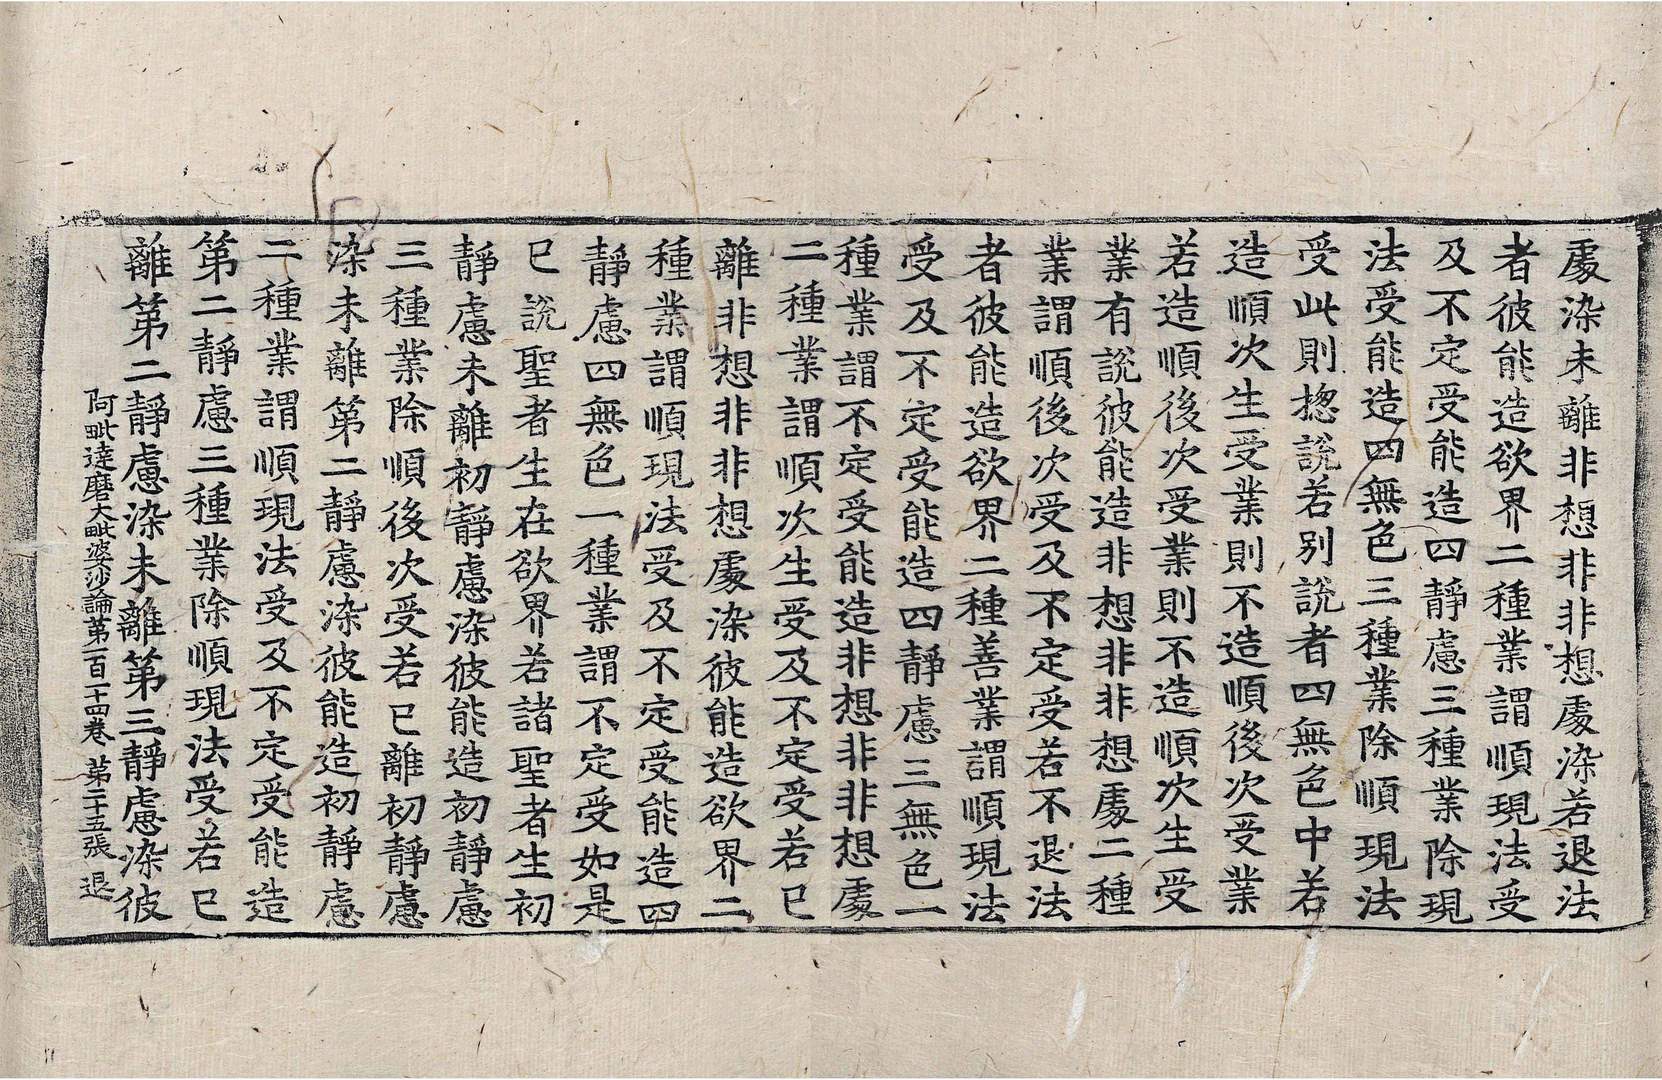 處染未離非想非非想處染若退法
者彼能造欲界二種業謂順現法受
及不定受能造四靜慮三種業除現
法受能造四無色三種業除順現法
受此則揔說若別說者四無色中若
造順次生受業則不造順後次受業
若造順後次受業則不造順次生受
業有說彼能造非想非非想處二種
業謂順後次受及不定受若不退法
者彼能造欲界二種善業謂順現法
受及不定受能造四靜慮三無色一
種業謂不定受能造非想非非想處
二種業謂順次生受及不定受若已
離非想非非想處染彼能造欲界二
種業謂順現法受及不定受能造四
靜慮四無色一種業謂不定受如是
已說聖者生在欲界若諸聖者生初
靜慮未離初靜慮染彼能造初靜慮
三種業除順後次受若已離初靜慮
染未離第二靜慮染彼能造初靜慮
二種業謂順現法受及不定受能造
第二靜慮三種業除順現法受若已
離第二靜慮染未離第三靜慮染彼
阿毗達磨大毗婆沙論第一百一十四卷 第二十五張 退